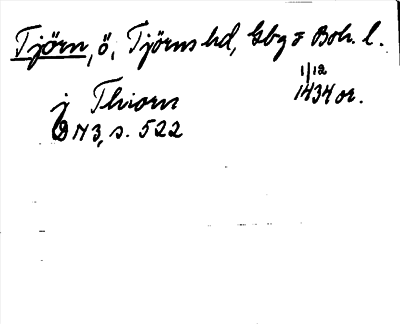 Tjörn, ö, Tjörns hd, Gbg o Boh. l.
j Thiorn 1/12 1434 or.
DN 3, s. 522